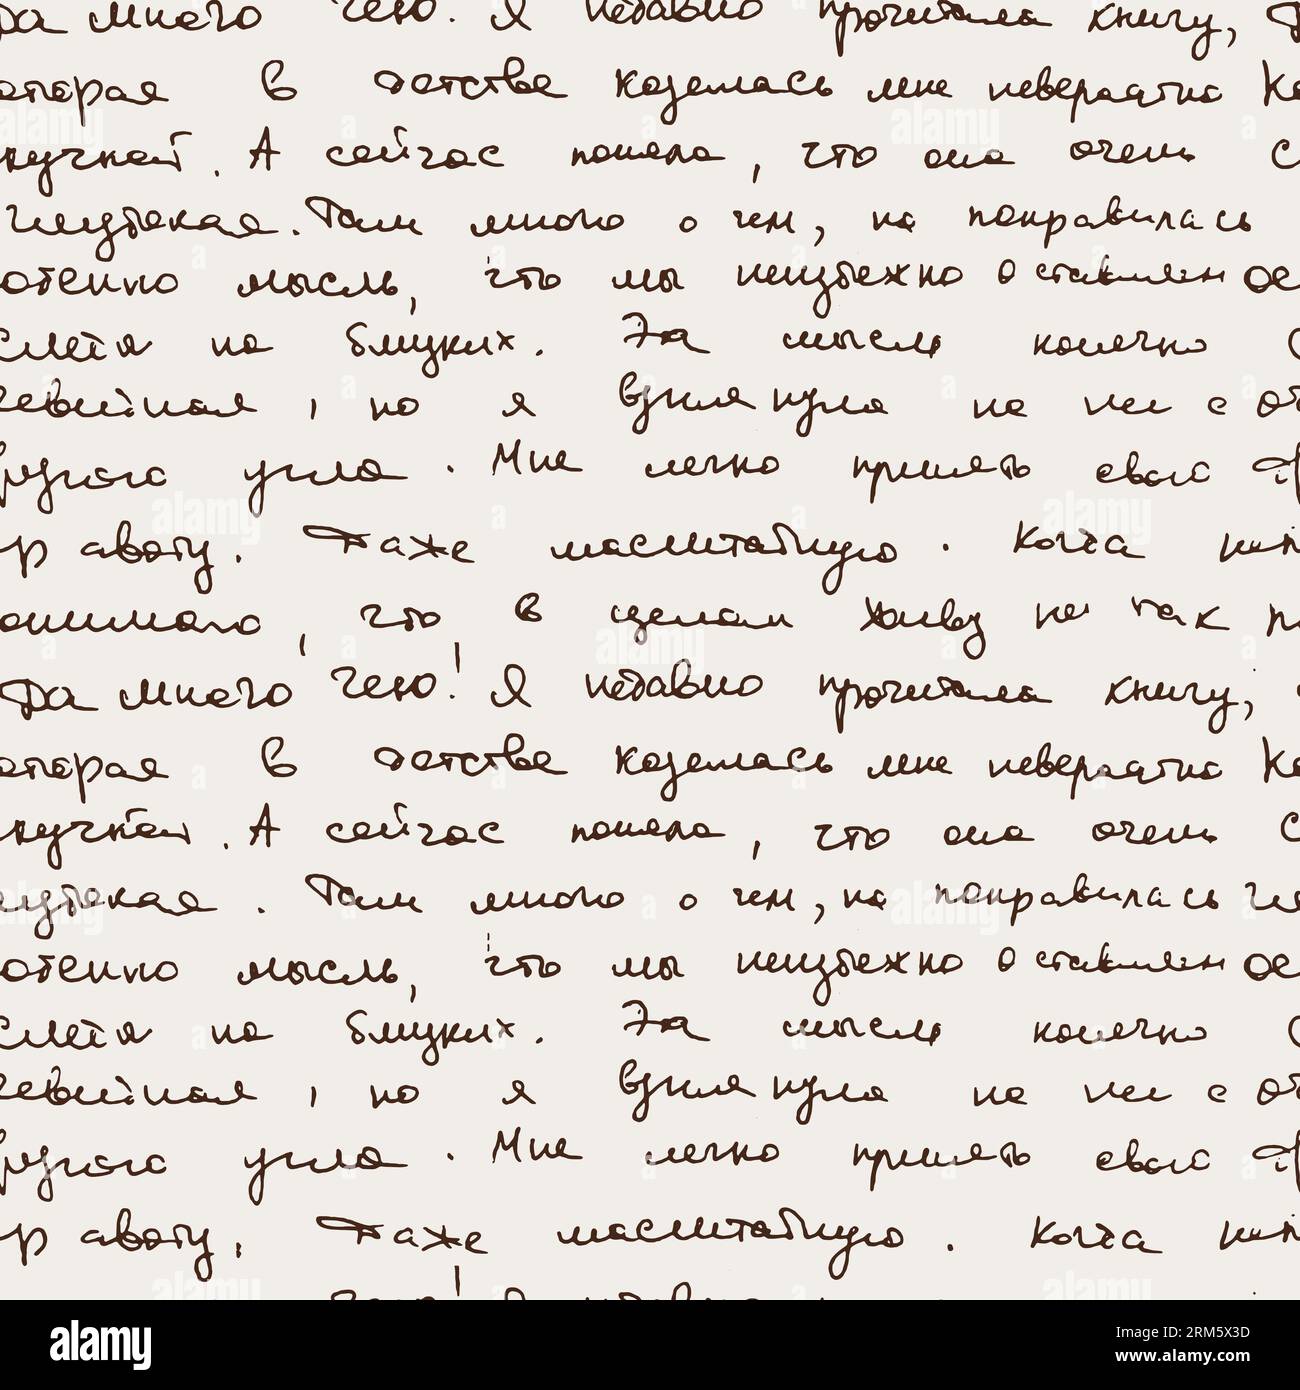 Да много чего! Я недавно прочитала книгу,
оторая в детстве казалась мне невероятно
кучной. А сейчас поняла, что она очень с
глубокая. Там много о чем, но понравилась
отенно мысль, что мы неизбежно оставляем
след на близких. Эта мысль конечно
но я взглянула на нее с
другого угла. Мне легко принять свою
р авоту. Даже масштабную. Когда
понимаю, что в целом живу не так
Да много чего! Я недавно прочитала книгу,
оторая в детстве казалась мне невероятно
кучной. А сейчас поняла, что она очень с
глубокая. Там много о чем, но понравилась
отенно мысль, что мы неизбежно оставляем
на близких. Эта мысль конечно
но я взглянула на нее с
другого угла. Мне легко принять свою
р авоту. Даже масштабную. Когда
alamy
Image ID: RM5X3D
www.alamy.com